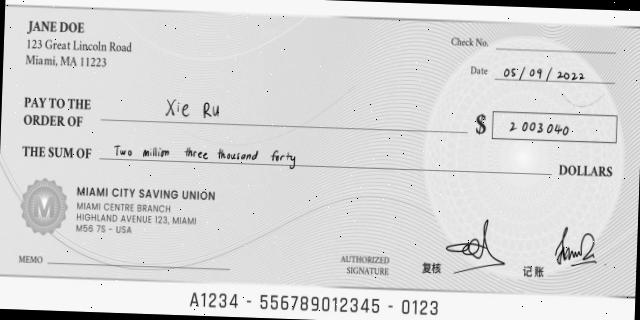 JANE DOE
123 Great Lincoln Road
Miami, MA 11223
Check No.
Date 05/09/2022
PAY TO THE
ORDER OF Xie Ru
$ 2003040
THE SUM OF Two million three thousand forty DOLLARS
M
MIAMI CITY SAVING UNION
MIAMI CENTRE BRANCH
HIGHLAND AVENUE 123, MIAMI
M56 7S - USA
MEMO
AUTHORIZED
SIGNATURE
复核
记账
A1234 - 556789012345 - 0123